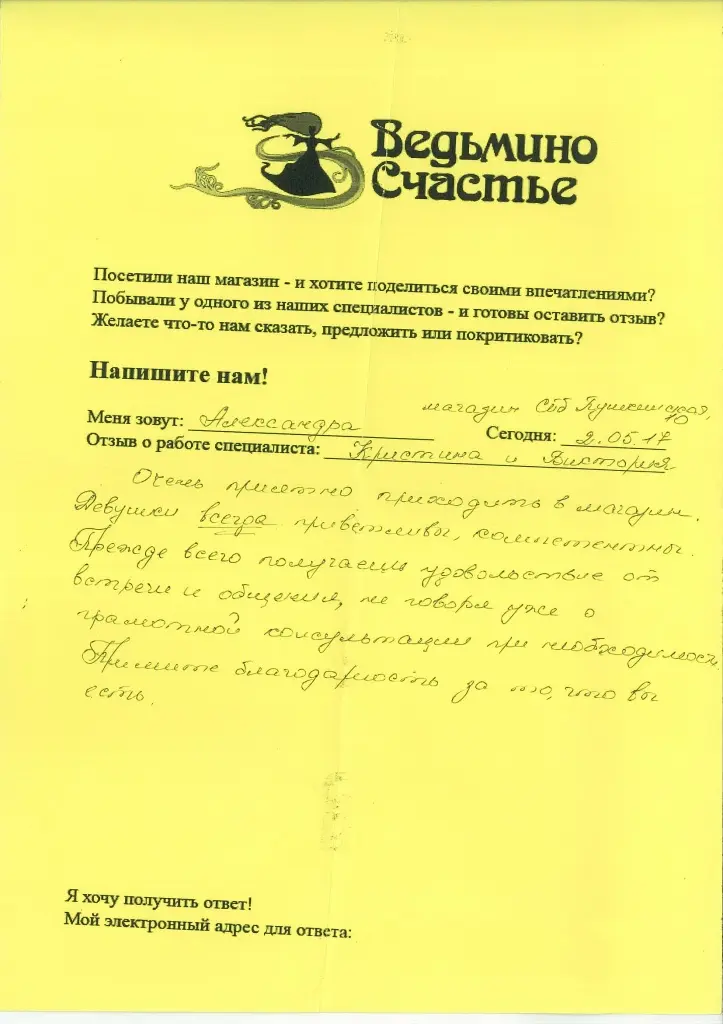 Ведьмино
Счастье
Посетили наш магазин - и хотите поделиться своими впечатлениями?
Побывали у одного из наших специалистов - и готовы оставить отзыв?
Желаете что-то нам сказать, предложить или покритиковать?
Напишите нам!
магазин Спб Пушкинская,
10
Меня зовут: Александра Сегодня: 2.05.17
Отзыв о работе специалиста: Кристина и Виктория
Очень приятно приходить в магазин.
Девушки всегда приветливы, компетентны.
Прежде всего получаешь удовольствие от
встречи и общения, не говоря уже о
грамотной консультации при необходимости.
Примите благодарность за то, что вы
есть.
Я хочу получить ответ!
Мой электронный адрес для ответа: